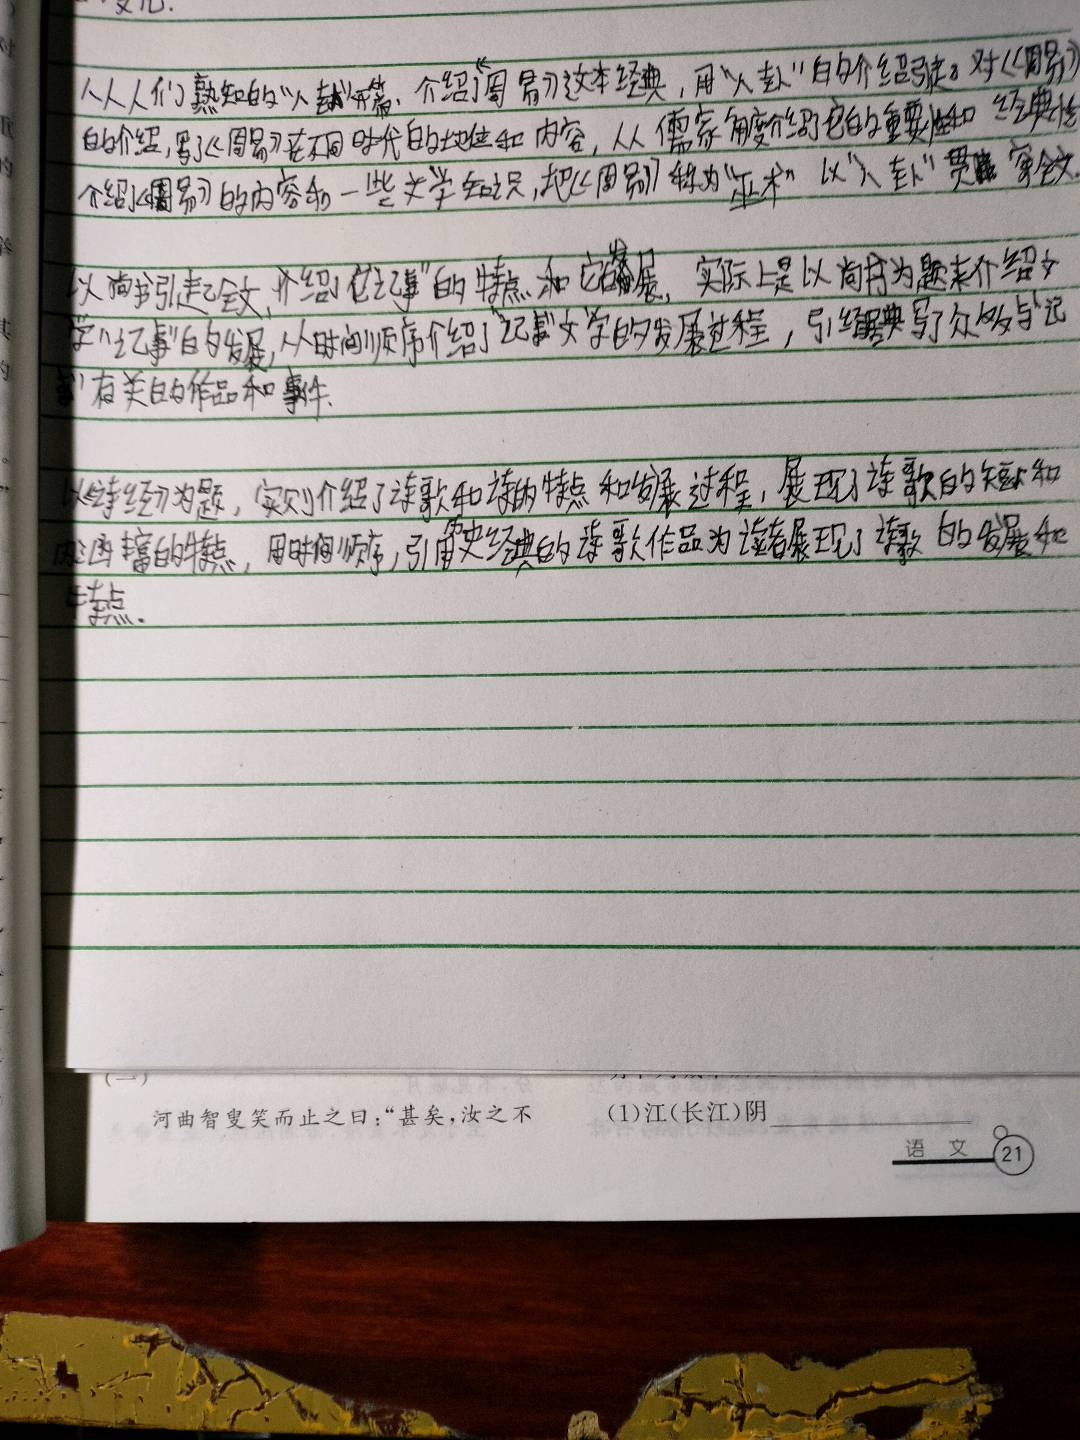 变化.
从人们熟知的“八卦”开篇、介绍了《周易》这本经典，用“八卦”的介绍引起。对《周易》
的介绍，写了《周易》在不同时代的地位和内容，从儒家角度介绍了它的重要性和经典性
介绍《周易》的内容和一些文学知识，把《周易》称为“巫术”以“八卦”贯穿全文.
以尚书引起全文，介绍了它“记事”的特点和它的发展，实际上是以尚书为题来介绍文
学“记事”的发展，从时间顺序介绍了“记事”文学的发展过程，引经据典写了众多与“记
事”有关的作品和事件.
以《诗经》为题，实则介绍了诗歌和诗的特点和发展过程，展现了诗歌的短小和
内涵丰富的特点，用时间顺序，引用历史经典的诗歌作品为读者展现了诗歌的发展和
特点.
河曲智叟笑而止之曰：“甚矣，汝之不
(1)江(长江)阴
语 文 21